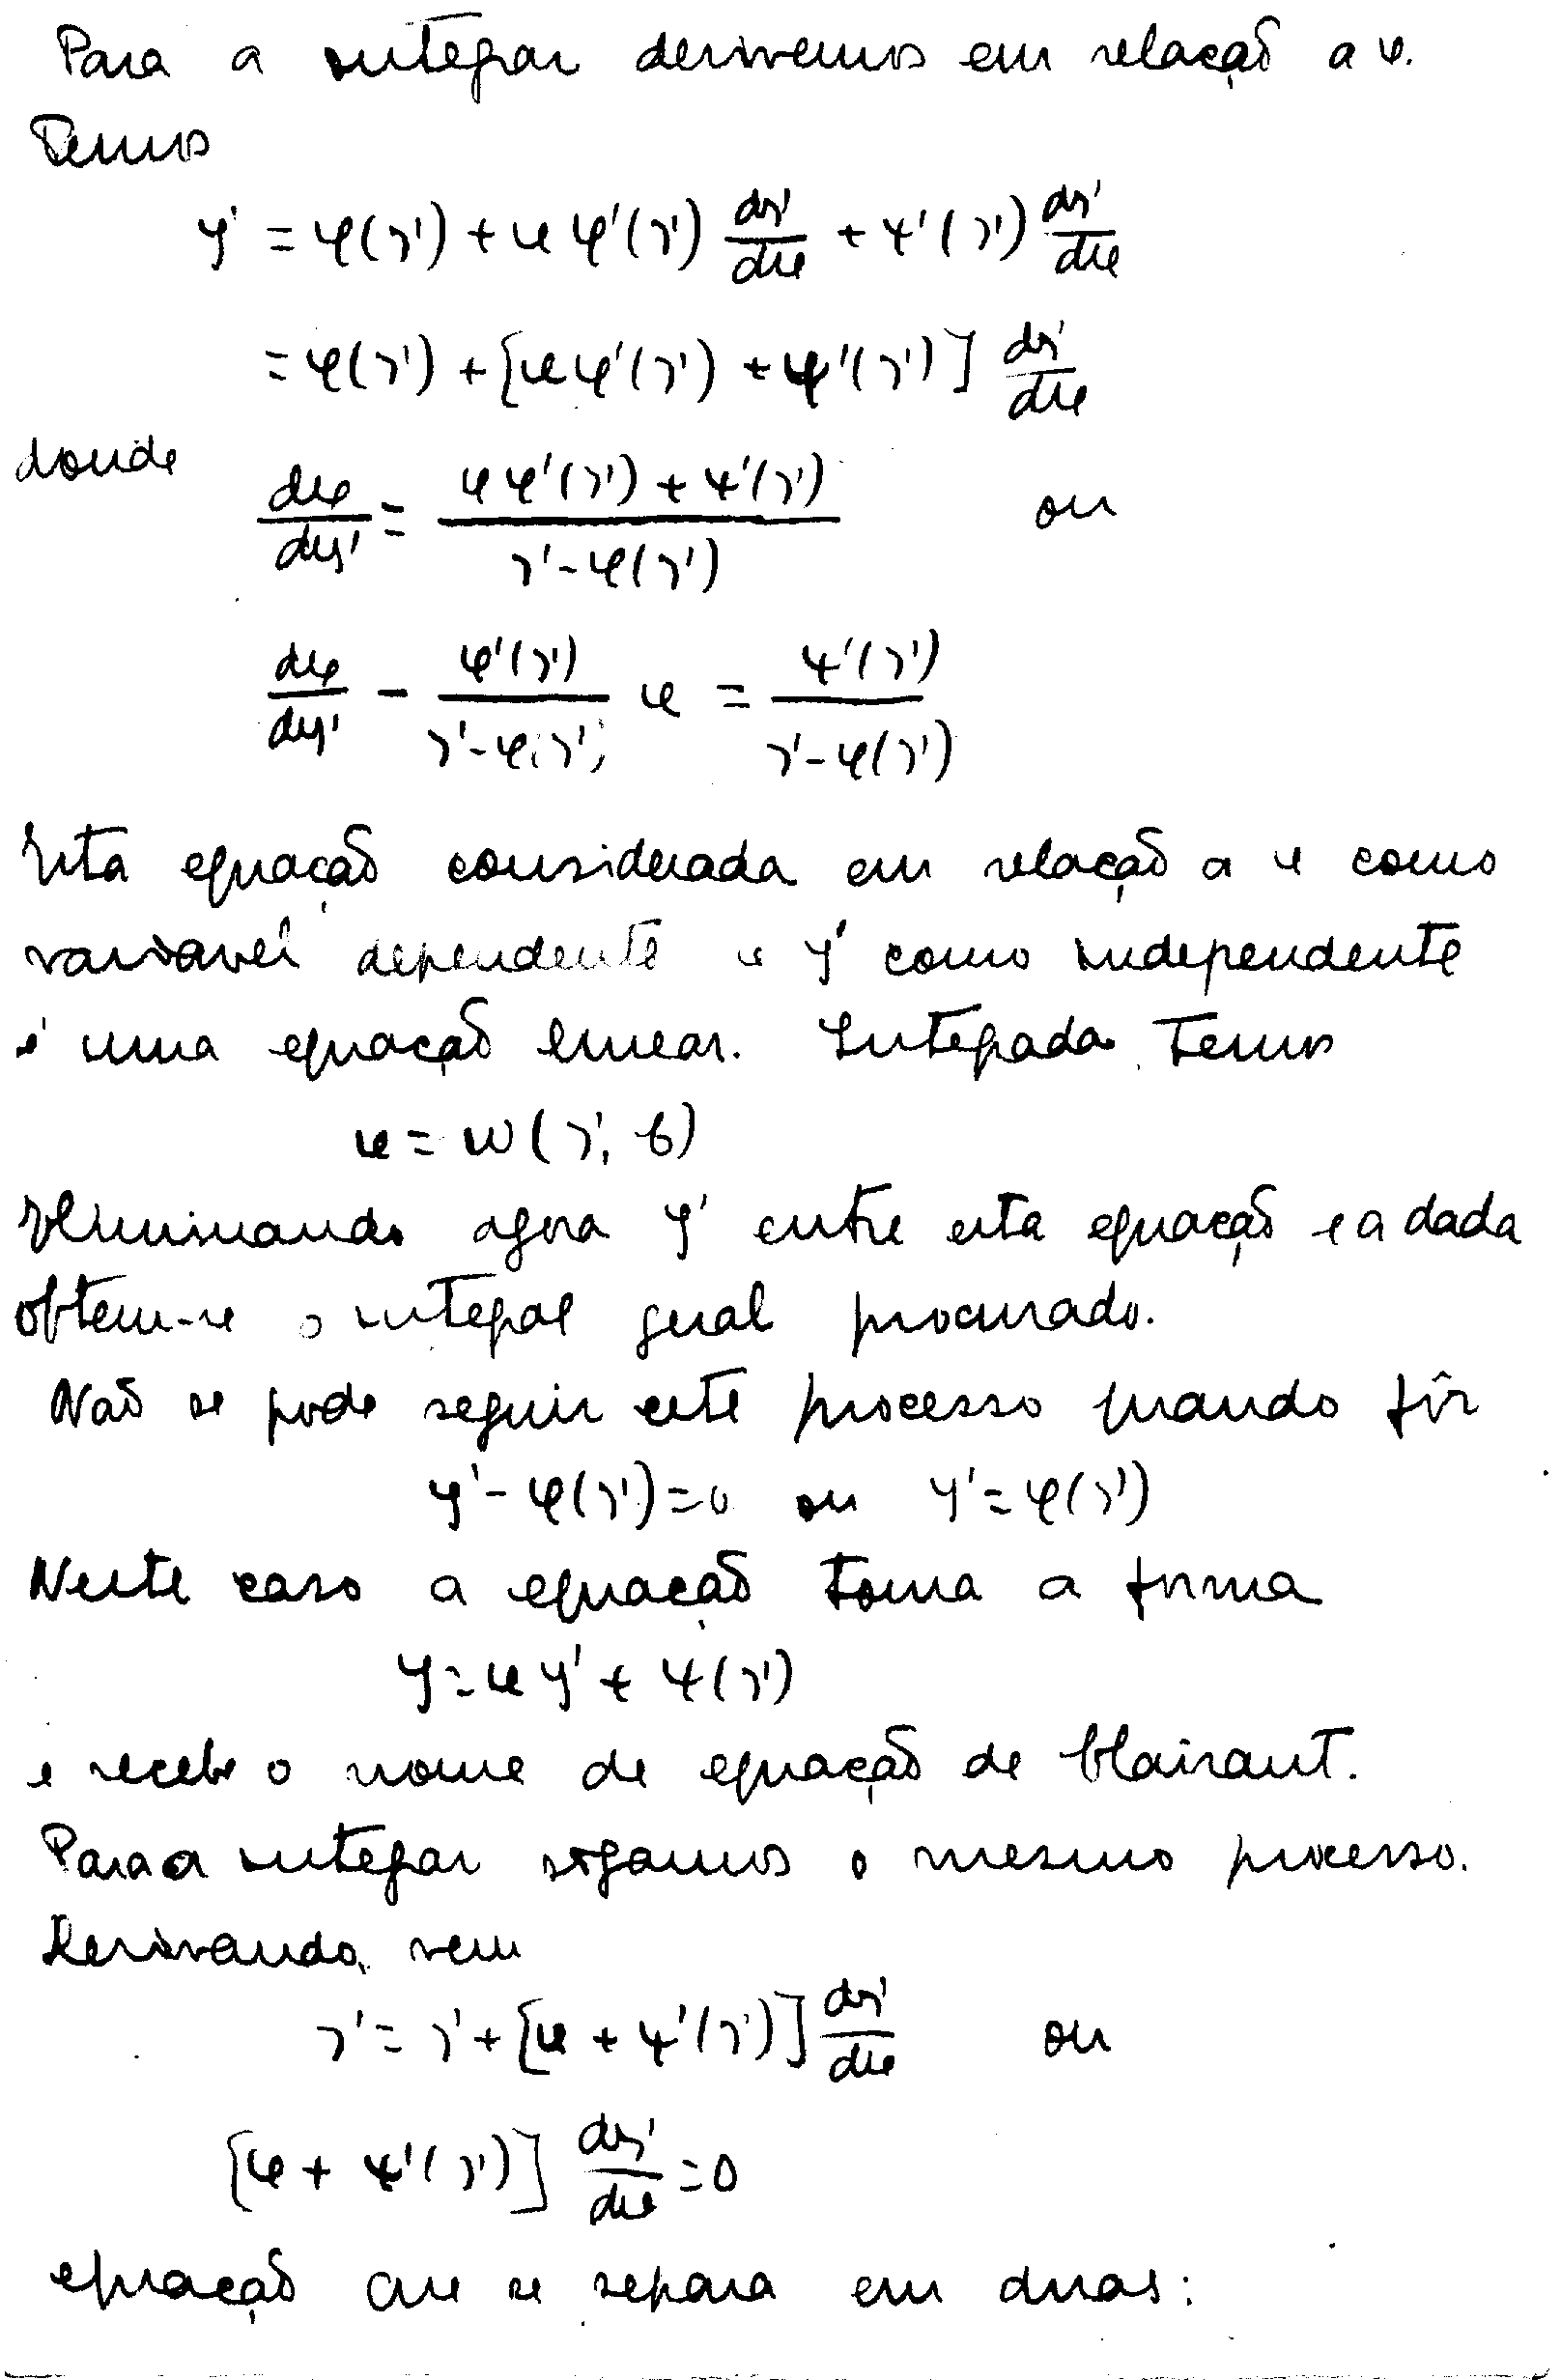 Para a integrar derivemos em relação a x.
Temos
y' = φ(y') + x φ'(y') dy'/dx + ψ'(y') dy'/dx
= φ(y') + [x φ'(y') + ψ'(y')] dy'/dx
donde
dx/dy' = (x φ'(y') + ψ'(y')) / (y' - φ(y')) ou
dx/dy' - φ'(y')/(y' - φ(y')) x = ψ'(y')/(y' - φ(y'))
Esta equação considerada em relação a x como
variavel dependente e y' como independente
é uma equação linear. Integrada temos
x = w(y', C)
Eliminando agora y' entre esta equação e a dada
obtem-se o integral geral procurado.
Não se pode seguir este processo quando fôr
y' - φ(y') = 0 ou y' = φ(y')
Neste caso a equação toma a forma
y = x y' + ψ(y')
e recebe o nome de equação de Clairaut.
Para a integrar sigamos o mesmo processo.
Derivando, vem
y' = y' + [x + ψ'(y')] dy'/dx ou
[x + ψ'(y')] dy'/dx = 0
equação que se separa em duas: